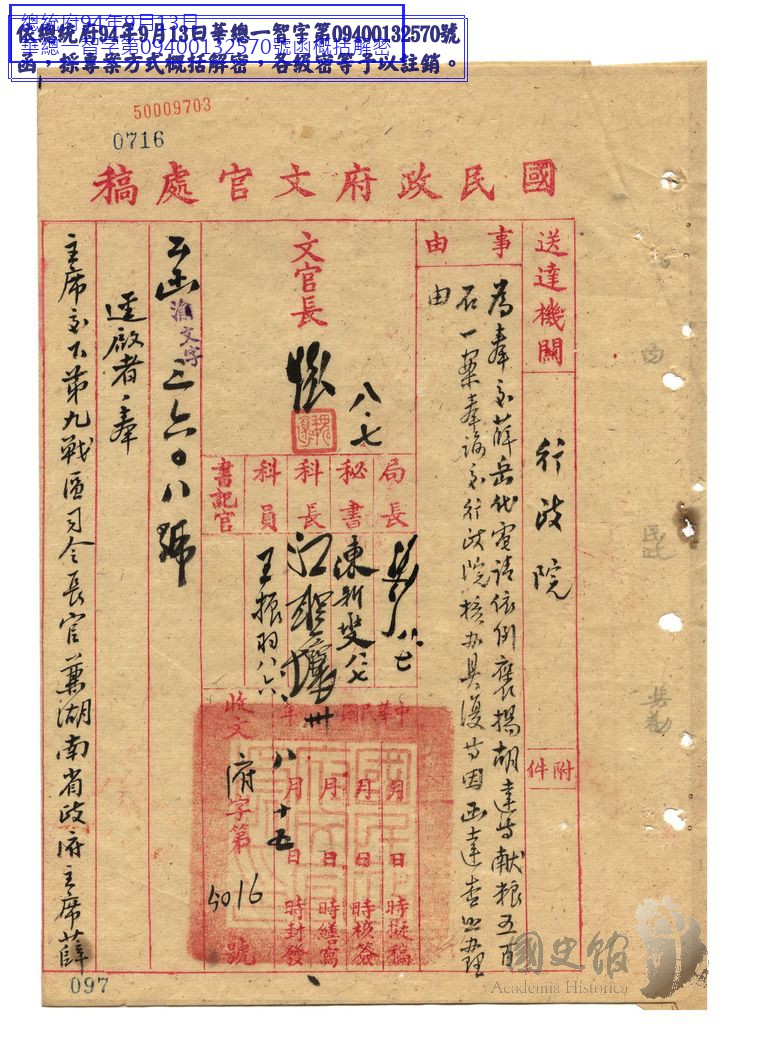 總統府94年9月13日
華總一智字第09400132570號函概括解密
依總統府94年9月13日華總一智字第09400132570號
函，採專案方式概括解密，各級密等予以註銷。
50009703
0716
國民政府文官處稿
送達機關
行政院
附件
事由
為奉交薛岳代電請依例褒揚胡達等献糧五百
石一案奉諭交行政院核办具復等因函達查照办理
由
文官長
八·七
局長
秘書
陳新燮 八·七
科長
科員
王振羽 八·六
書記官
中華民國卅年
月日時擬稿
月日時核簽
月日時繕寫
八月十五日時封發
收文府字第5016號
公函渝文字三六〇八號
逕啟者奉
主席交下第九戰區司令長官兼湖南省政府主席薛
097
國史館
Academia Historica